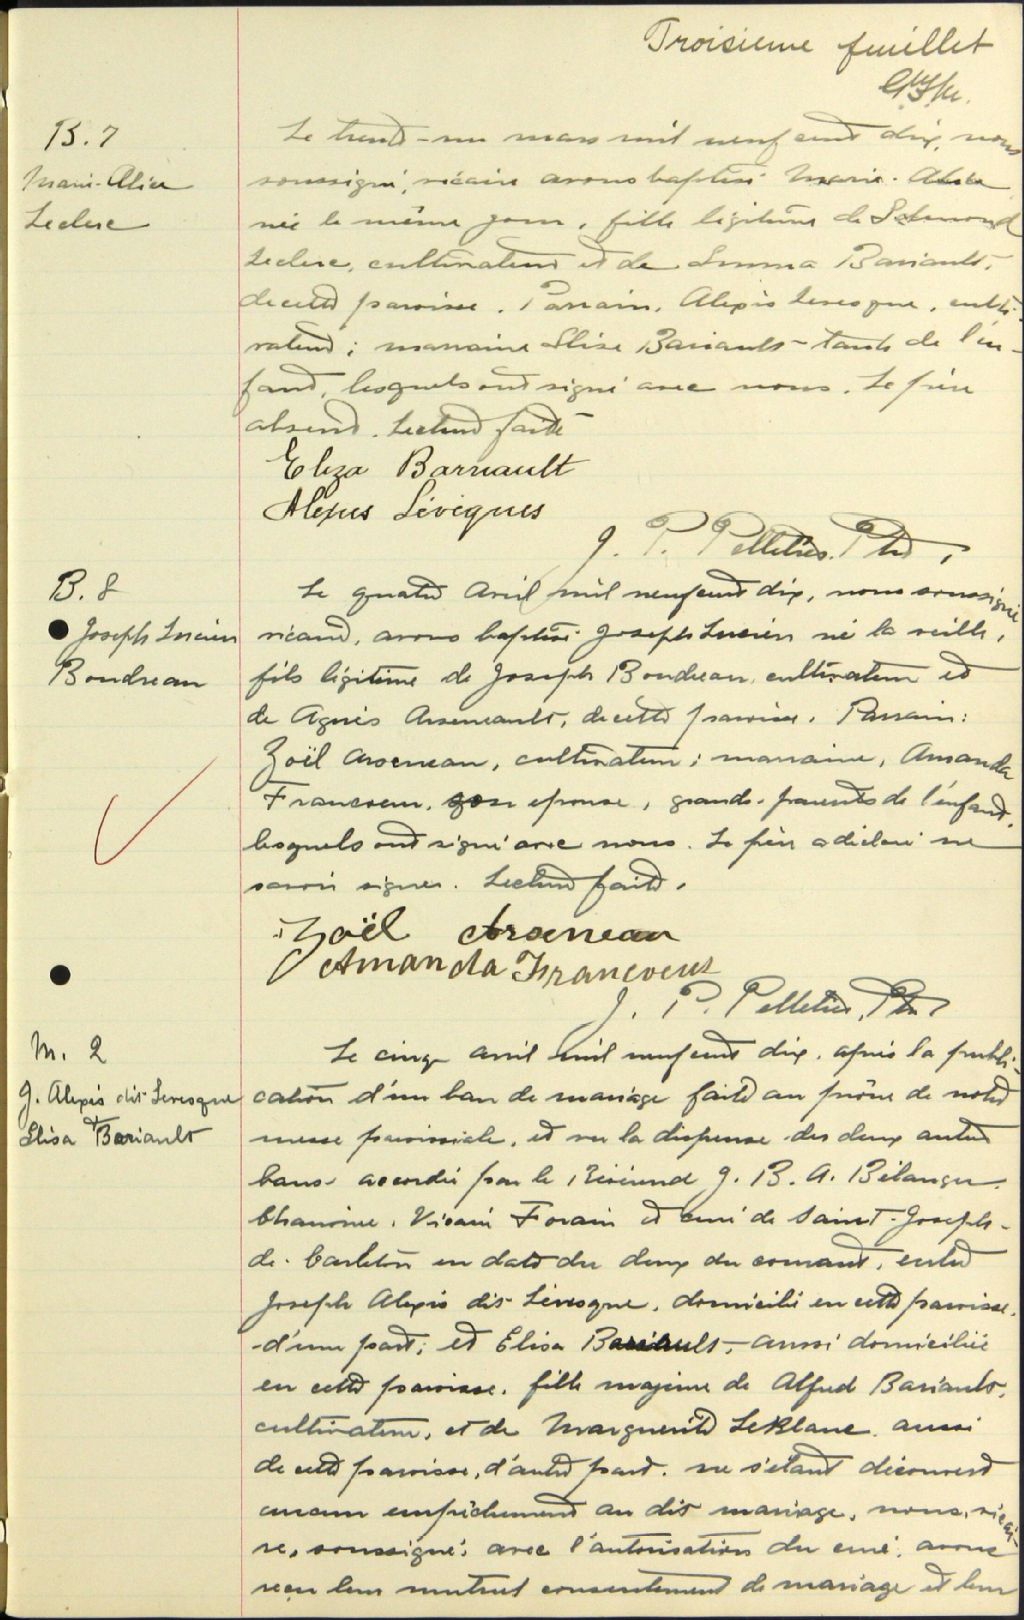 Troisieme feuillet
B. 7
Marie-Alice
Leclerc
Le trente-un mars mil neuf cent dix, nous
soussigné, vicaire avons baptisé Marie-Alice
née le même jour, fille légitime de Edmond
Leclerc, cultivateur et de Emma Bariault,
de cette paroisse. Parrain, Alexis Levesque, culti-
vateur; marraine Elise Bariault-tante de l'en-
fant, lesquels ont signé avec nous. Le père
absent. Lecture faite
Eliza Barriault
Alexis Lévèques
J. P. Pelletier. Ptre,
B. 8
Joseph Lucien
Boudreau
Le quatre Avril mil neuf cent dix, nous soussigné
vicaire, avons baptisé Joseph Lucien né la veille,
fils légitime de Joseph Boudreau, cultivateur et
de Agnès Arseneault, de cette paroisse. Parrain:
Zoël Arseneau, cultivateur; marraine, Amanda
Francoeur, son epouse, grands-parents de l'enfant,
lesquels ont signé avec nous. Le père a déclaré ne
savoir signer. Lecture faite.
Zoël Arseneau
Amanda Francoeur
J. P. Pelletier, Ptre
M. 2
J. Alexis dit Levesque
&
Elisa Bariault
Le cinq avril mil neuf cent dix, après la publi-
cation d'un ban de mariage faite au prône de notre
messe paroissiale, et vu la dispense des deux autres
bans accordée par le Révérend J. B. A. Bélanger
Chanoine, Vicaire Forain et curé de Saint-Joseph-
de-Carleton en date du deux du courant, entre
Joseph Alexis dit Lévesque, domicilié en cette paroisse,
d'une part; et Elisa Bariault, aussi domiciliée
en cette paroisse, fille majeure de Alfred Bariault,
cultivateur, et de Marguerite LeBlanc aussi
de cette paroisse, d'autre part, ne s'étant découvert
aucun empêchement au dit mariage, nous, vicai-
re, soussigné, avec l'autorisation du curé, avons
reçu leur mutuel consentement de mariage et leur